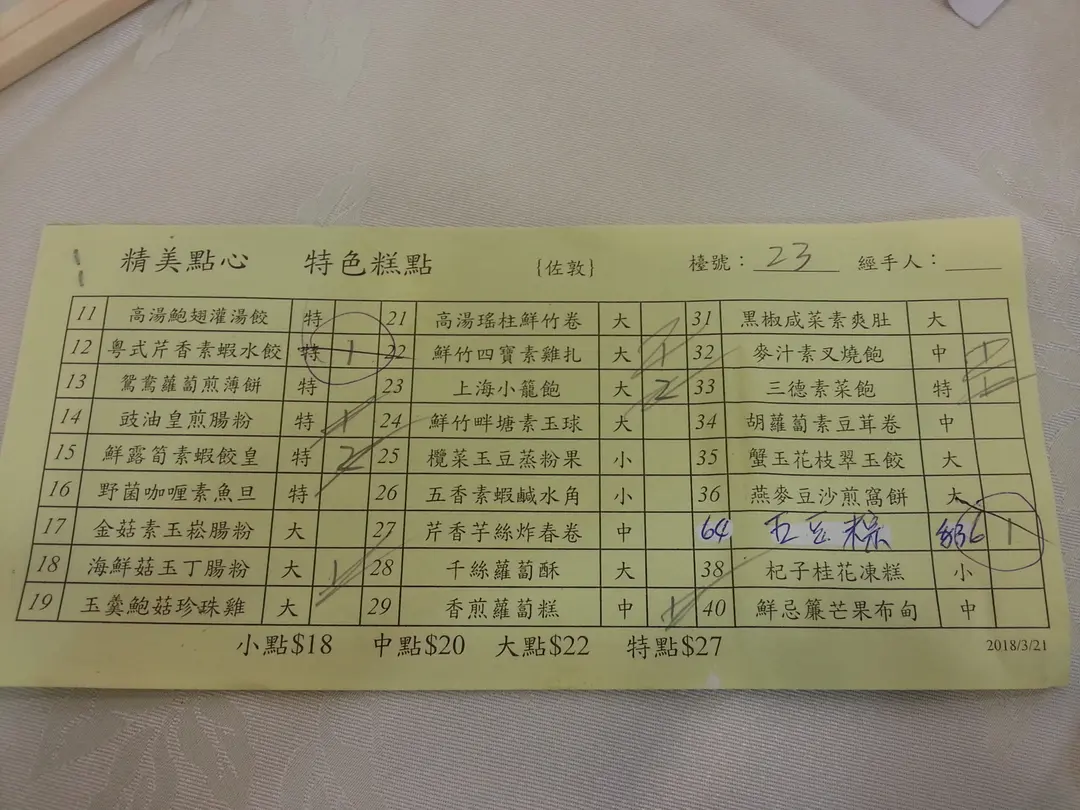 精美點心 特色糕點 {佐敦} 檯號：23 經手人：
11 高湯鮑翅灌湯餃 特 21 高湯瑤柱鮮竹卷 大 31 黑椒咸菜素爽肚 大
12 粵式芹香素蝦水餃 特 1 22 鮮竹四寶素雞扎 大 1 32 麥汁素叉燒飽 中 1
13 鴛鴦蘿蔔煎薄餅 特 23 上海小籠飽 大 2 33 三德素菜飽 特 1
14 豉油皇煎腸粉 特 1 24 鮮竹畔塘素玉球 大 34 胡蘿蔔素豆茸卷 中
15 鮮露筍素蝦餃皇 特 2 25 欖菜玉豆蒸粉果 小 35 蟹玉花枝翠玉餃 大
16 野菌咖喱素魚旦 特 26 五香素蝦鹹水角 小 36 燕麥豆沙煎窩餅 大
17 金菇素玉崧腸粉 大 27 芹香芋絲炸春卷 中 64 五豆粽 $36 1
18 海鮮菇玉丁腸粉 大 1 28 千絲蘿蔔酥 大 38 杞子桂花凍糕 小
19 玉羹鮑菇珍珠雞 大 29 香煎蘿蔔糕 中 1 40 鮮忌簾芒果布甸 中
小點$18 中點$20 大點$22 特點$27 2018/3/21